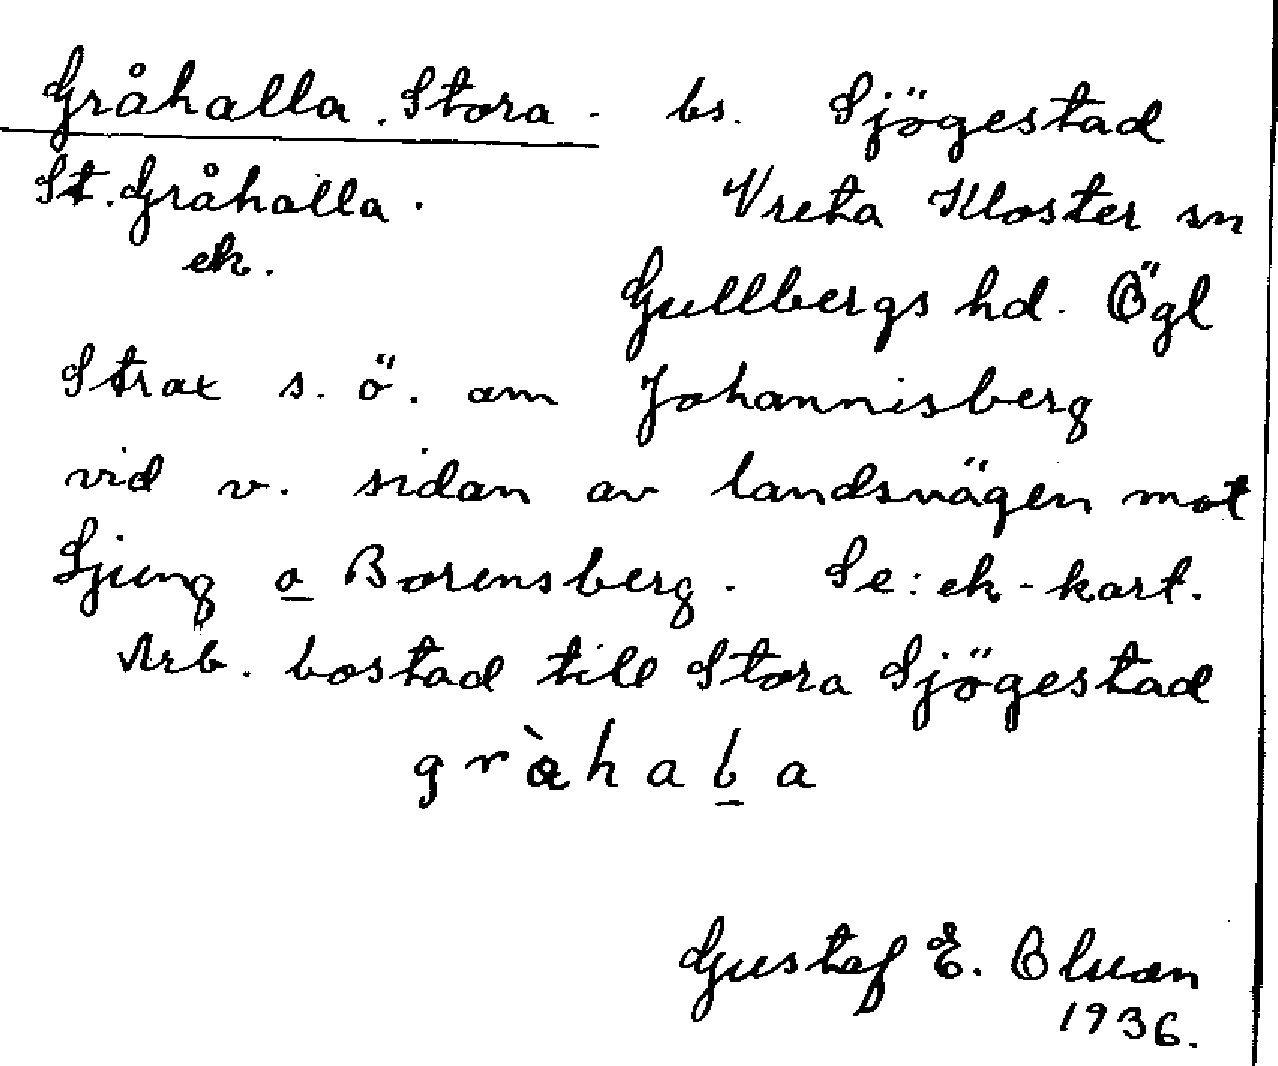 Gråhalla, Stora. bs. Sjögestad
St. Gråhalla. Vreta Kloster sn
ek. Gullbergs hd. Ögl
Strax s. ö. om Johannisberg
vid v. sidan av landsvägen mot
Ljung o Borensberg. Se: ek-kart.
Arb. bostad till Stora Sjögestad
gràhaḻa
Gustaf E. Olsson
1936.